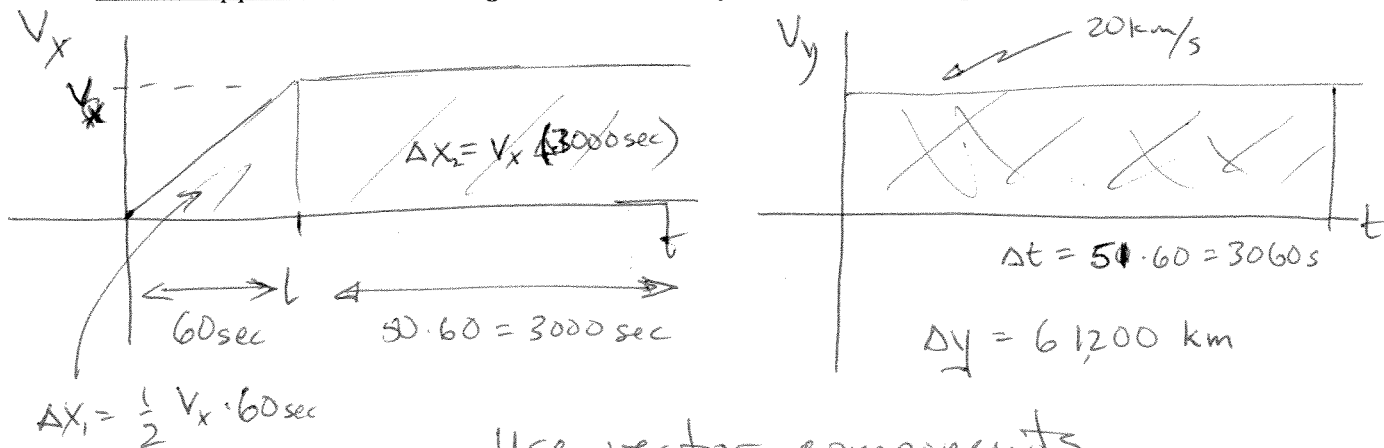 Vx
Vx
ΔX₂ = Vx (3000sec)
t
60sec
50·60 = 3000 sec
ΔX₁ = 1/2 Vx·60sec
Vy
20km/s
t
Δt = 51·60 = 3060s
Δy = 61,200 km
Use vector components